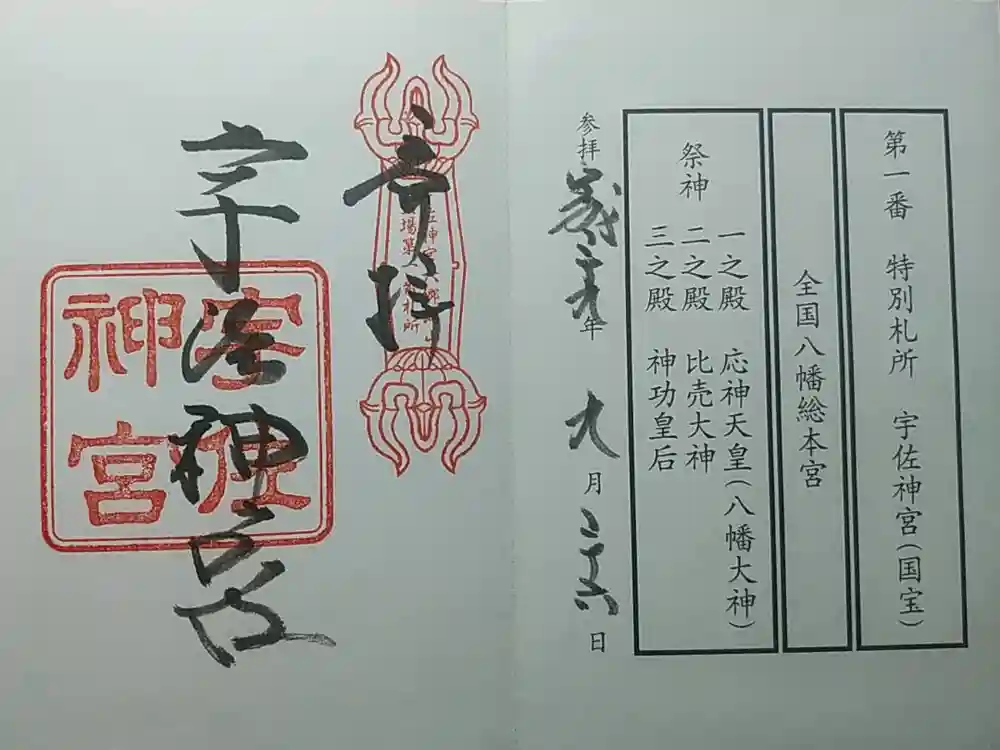 第一番　特別札所　宇佐神宮(国宝)
全国八幡総本宮
祭神
一之殿　応神天皇(八幡大神)
二之殿　比売大神
三之殿　神功皇后
参拝　二十九年　九月二十六日
奉拝
宇佐神宮
宇佐
神宮